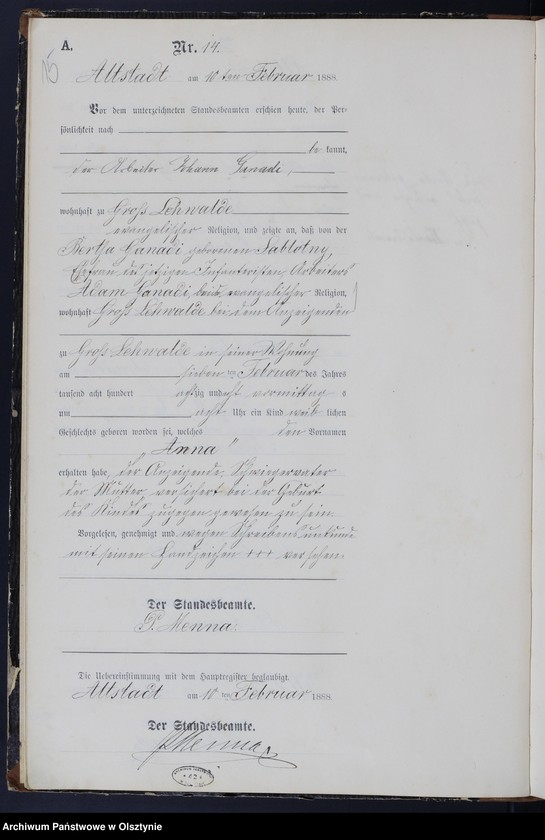 A.
Nr. 14.
Altstadt am 10 ten Februar 1888.
Vor dem unterzeichneten Standesbeamten erschien heute, der Per-
sönlichkeit nach
be kannt,
der Arbeiter Johann Ganadi,
wohnhaft zu Groß Lehwalde
evangelischer Religion, und zeigte an, daß von der
Bertha Ganadi geborenen Sablotny,
Ehefrau des jetzigen Infanteristen, Arbeiters
Adam Ganadi, beide evangelischer Religion,
wohnhaft Groß Lehwalde bei dem Anzeigenden
zu Groß Lehwalde in seiner Wohnung
am sieben ten Februar des Jahres
tausend acht hundert achtzig und acht vormittag s
um acht Uhr ein Kind weib lichen
Geschlechts geboren worden sei, welches den Vornamen
"Anna"
erhalten habe, der Anzeigende, Schwiegervater
der Mutter, versichert bei der Geburt
des Kindes zugegen gewesen zu sein.
Vorgelesen, genehmigt und wegen Schreibensunkunde
mit seinen Handzeichen +++ versehen.
Der Standesbeamte.
P. Menna.
Die Uebereinstimmung mit dem Hauptregister beglaubigt.
Altstadt am 10 ten Februar 1888.
Der Standesbeamte.
P Menna
Archiwum Państwowe w Olsztynie